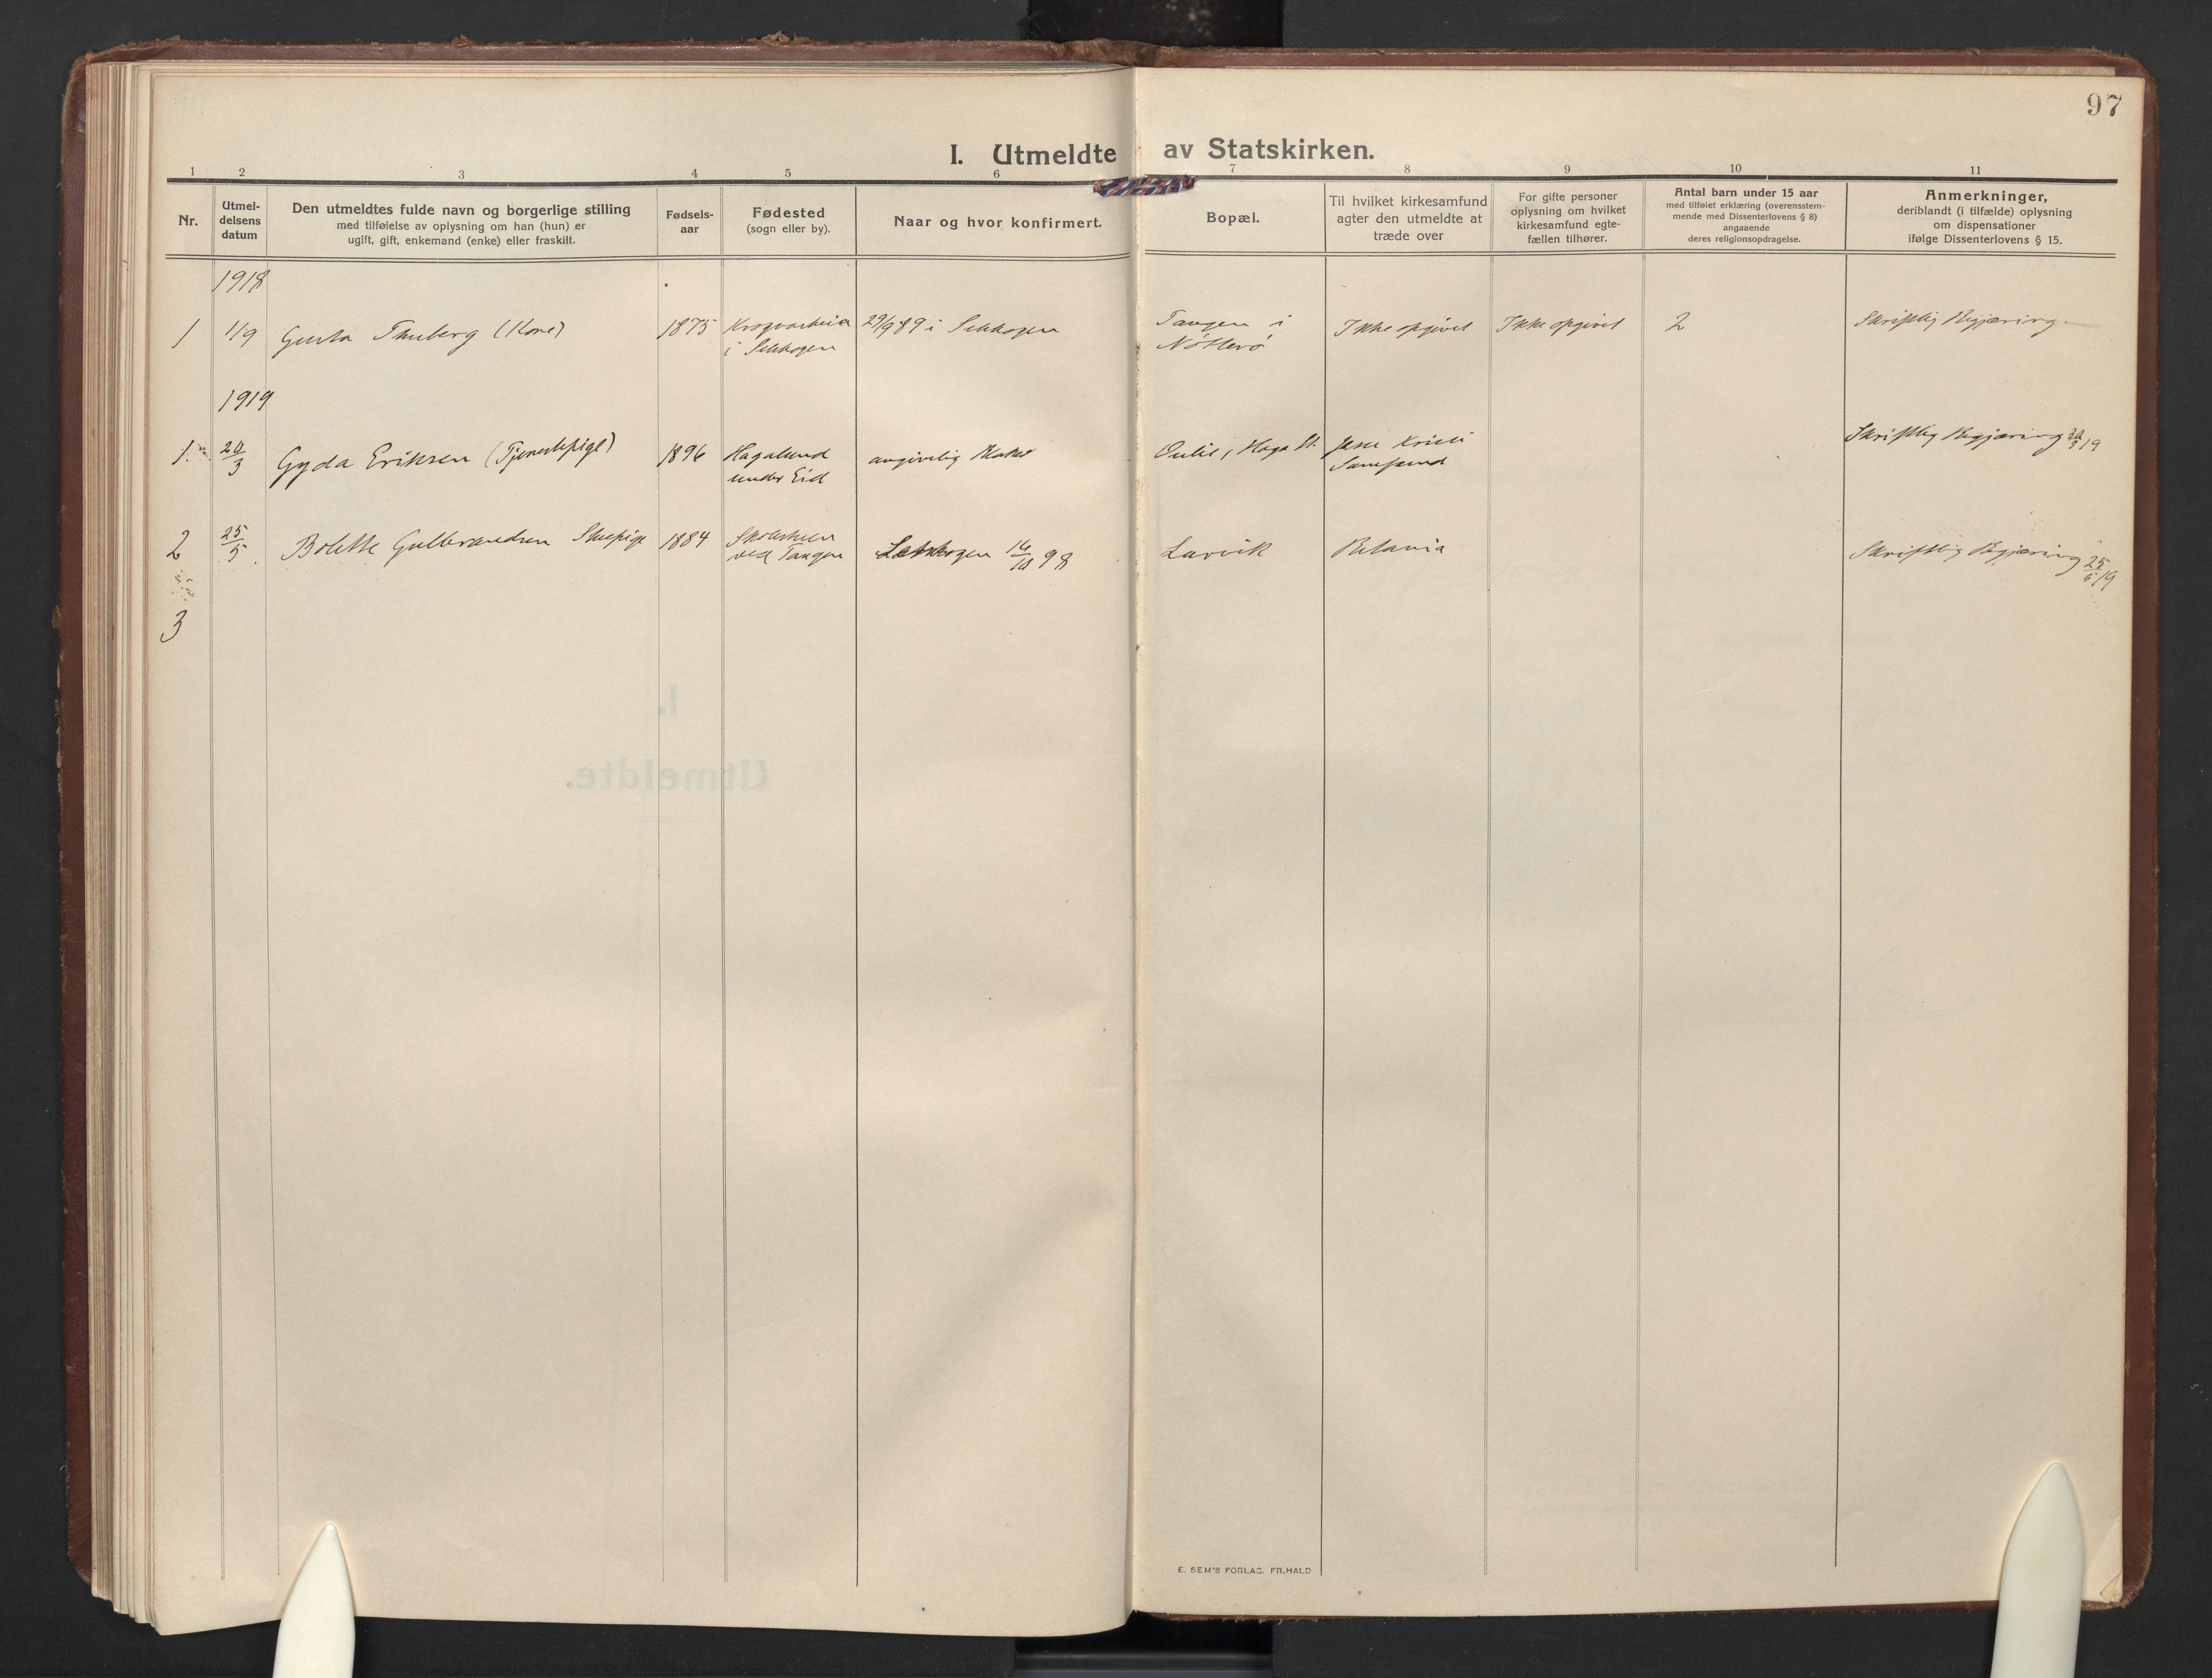 97
I. Utmeldte av Statskirken.
1 2 3 4 5 6 7 8 9 10 11
Nr.
Utmel-
delsens
datum
Den utmeldtes fulde navn og borgerlige stilling
med tilføielse av oplysning om han (hun) er
ugift, gift, enkemand (enke) eller fraskilt.
Fødsels-
aar
Fødested
(sogn eller by).
Naar og hvor konfirmert.
Bopæl.
Til hvilket kirkesamfund
agter den utmeldte at
træde over
For gifte personer
oplysning om hvilket
kirkesamfund egte-
fællen tilhører.
Antal barn under 15 aar
med tilføiet erklæring (overensstem-
mende med Dissenterlovens § 8)
angaaende
deres religionsopdragelse.
Anmerkninger,
deriblandt (i tilfælde) oplysning
om dispensationer
ifølge Dissenterlovens § 15.
1918
1 1/9 Gusta Thuberg (Kone) 1875
i
29/9 89 i
Tangen i
Nötterö
Ikke opgivet Ikke opgivet 2 Skriftlig Begjæring
1919
1. 3 Gyda Eriksen (Tjenestepige) 1896
Hagalund
under Eid
angivelig
Haga St.
Jesu Kristi
Samfund
Skriftlig Begjæring 19
2 25/5. Bolette Gulbrandsen 1884
ved Tangen
98
Larvik Betania Skriftlig Begjæring 25/5 19
3
E. SEM'S FORLAG. FR. HALD